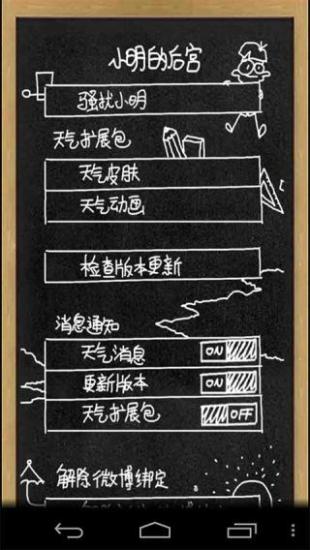 小明的后宫
骚扰小明
天气扩展包
天气皮肤
天气动画
检查版本更新
消息通知
天气消息 ON
更新版本 ON
天气扩展包 OFF
解除微博绑定